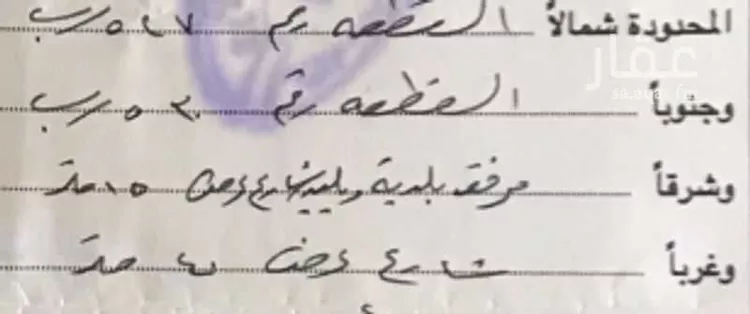 المحدودة شمالاً القطعه رقم ٥٢٧ / ب
وجنوباً القطعه رقم ٥٣٠ / ب
وشرقاً مرفق بلدية ويليه شارع عرض ١٥ متر
وغرباً شارع عرض متر
عقار
sa.aqar.fm